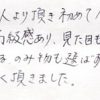 人より頂き初めて
級感あり、見た目も
のみ物も選ばず
く頂きました。